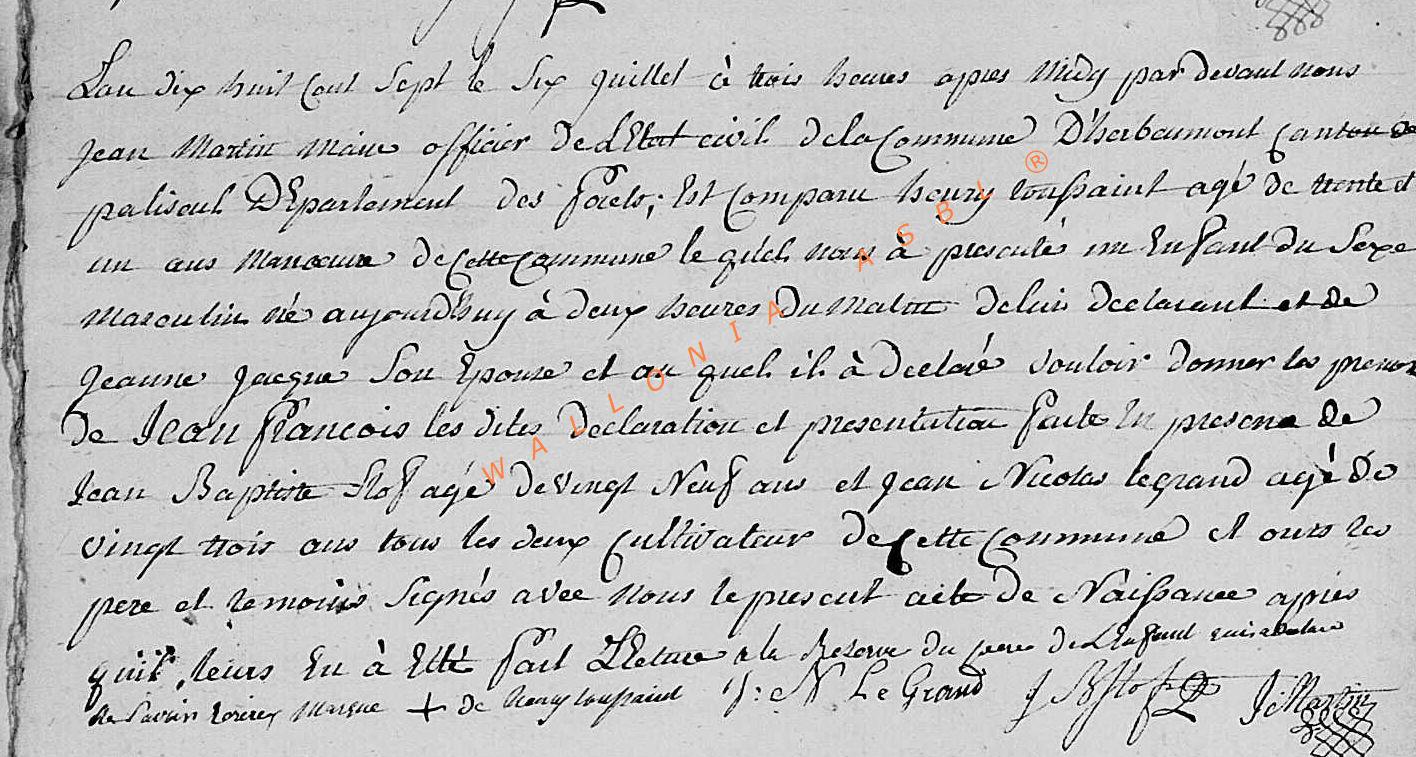 Lan dix huit Cent Sept le Six juillet à trois heures apres Midy par devant nous
Jean Martin Maire officier de L'Etat civil de la Commune D'herbeumont Canton de
paliseul DEpartement des forets, Est Comparu henry toussaint agé de trente et
un ans Manoeuvre de Cette Commune le quel nous à presenté un Enfant du Sexe
Masculin né aujourd'huy à deux heures du Matin de lui declarant et de
Jeanne Jacque Son Epouse et au quel il à declaré vouloir donner les prenom
de Jean François les dites declaration et presentation faite En presence de
Jean Baptiste Slof agé de vingt Neuf ans et Jean Nicolas legrand agé de
vingt trois ans tous les deux Cultivateur de Cette Commune et onts les
pere et temoins Signés avec nous le present acte de Naissance apres
quil leurs En à Etté fait Lecture a la Reserve du pere de L'Enfant qui a declaré
ne Savoir Marque + de henry toussaint J: N Le Grand J B Slof J: Martin
WALLONIA ASBL ®